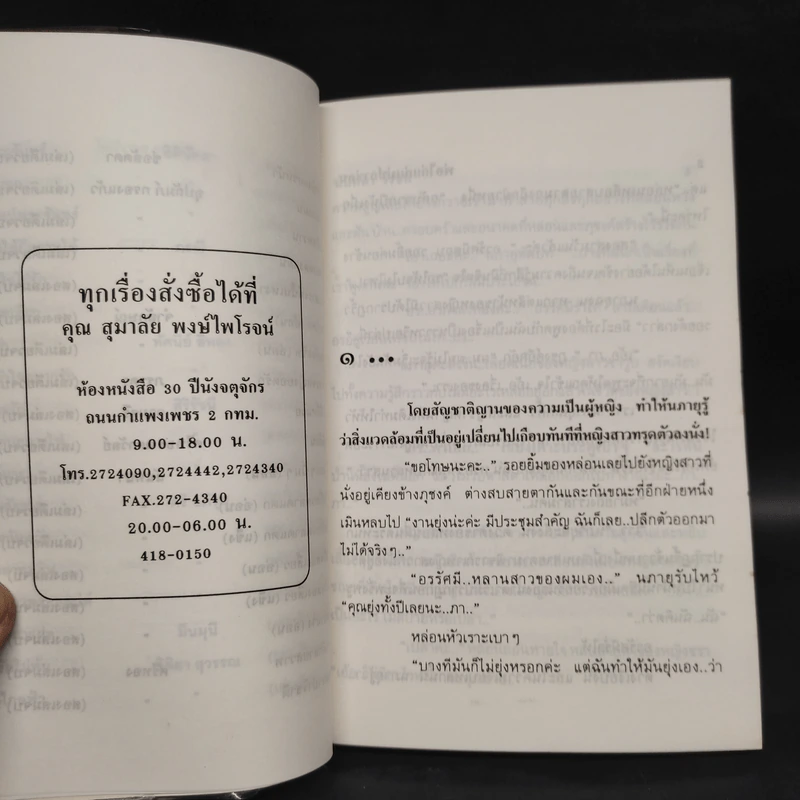 ทุกเรื่องสั่งซื้อได้ที่
คุณ สุมาลัย พงษ์ไพโรจน์
ห้องหนังสือ 30 ปีนังจตุจักร
ถนนกำแพงเพชร 2 กทม.
9.00-18.00 น.
โทร.2724090,2724442,2724340
FAX.272-4340
20.00-06.00 น.
418-0150
๑ ...
โดยสัญชาติญานของความเป็นผู้หญิง ทำให้นภายุรู้
ว่าสิ่งแวดล้อมที่เป็นอยู่เปลี่ยนไปเกือบทันทีที่หญิงสาวทรุดตัวลงนั่ง!
"ขอโทษนะคะ.." รอยยิ้มของหล่อนเลยไปยังหญิงสาวที่
นั่งอยู่เคียงข้างภุชงค์ ต่างสบสายตากันและกันขณะที่อีกฝ่ายหนึ่ง
เมินหลบไป "งานยุ่งน่ะค่ะ มีประชุมสำคัญ ฉันก็เลย..ปลีกตัวออกมา
ไม่ได้จริงๆ.."
"อรรัศมี..หลานสาวของผมเอง.." นภายุรับไหว้
"คุณยุ่งทั้งปีเลยนะ..ภา.."
หล่อนหัวเราะเบาๆ
"บางทีมันก็ไม่ยุ่งหรอกค่ะ แต่ฉันทำให้มันยุ่งเอง..ว่า